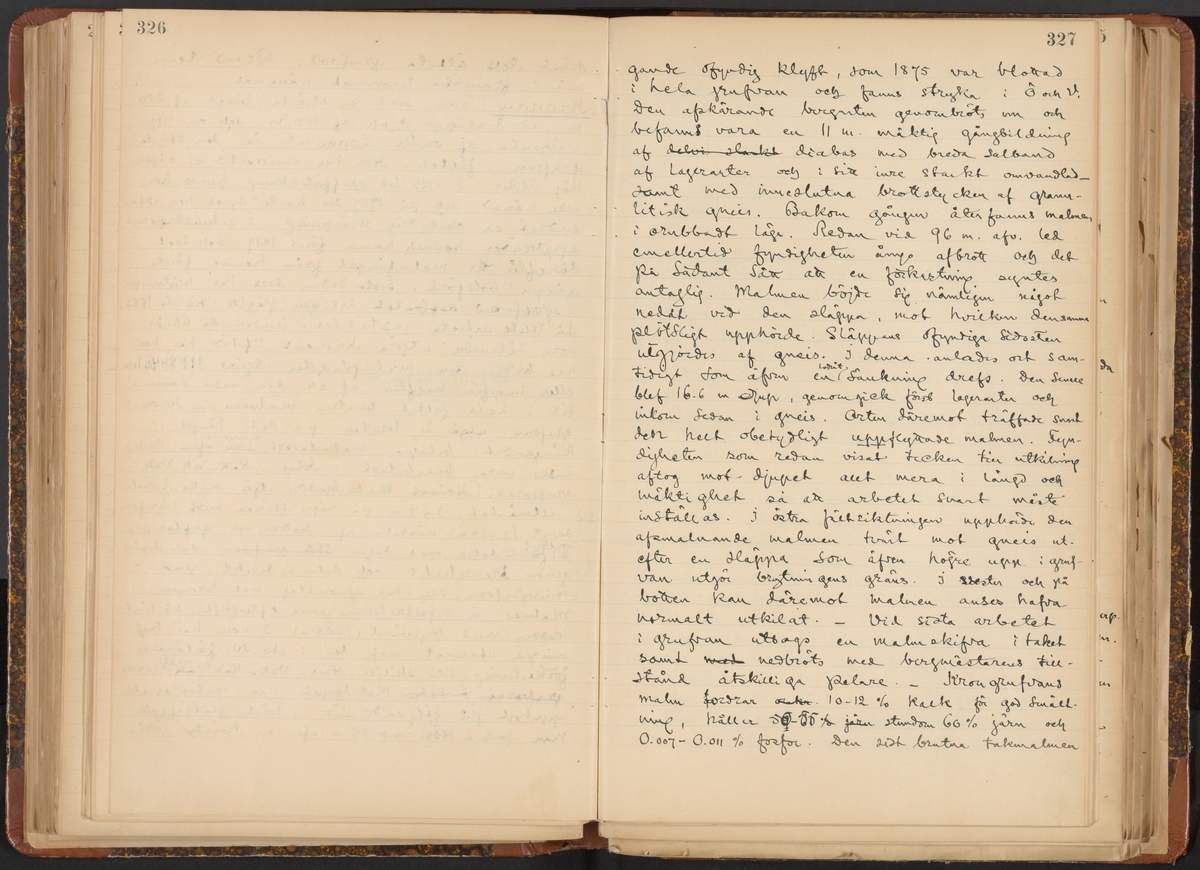 326
327
gande ofyndig klyft, som 1875 var blottad
i hela grufvan och fanns stryka i Ö och V.
Den afskärande bergarten genombröts nu och
befanns vara en 11 m. mäktig gångbildning
af diabas med breda salband
af lagerarter och i sitt inre starkt omvandlad
samt med inneslutna brottstycken af granu-
litisk gneis. Bakom gången återfanns malmen
i orubbadt läge. Redan vid 96 m. afv. led
emellertid fyndigheten ånyo afbrott och det
på sådant sätt att en förkastning syntes
antaglig. Malmen böjde sig nämligen något
nedåt vid den släppa, mot hvilken densamma
plötsligt upphörde. Släppans ofyndiga sidosten
utgjordes af gneis. I denna anlades ort sam-
tidigt som äfven en lodrät sänkning drefs. Den senare
blef 16.6 m djup, genomgick först lagerarter och
inkom sedan i gneis. Orten däremot träffade snart
den helt obetydligt uppflyttade malmen. Fyn-
digheten som redan visat tecken till utkilning
aftog mot djupet allt mera i längd och
mäktighet så att arbetet snart måste
inställas. I östra fältriktningen upphörde den
afsmalnande malmen tvärt mot gneis ut-
efter en släppa som äfven högre upp i gruf-
van utgör brytningens gräns. I vester och på
botten kan däremot malmen anses hafva
normalt utkilat. — Vid sista arbetet
i grufvan uttogs en malmskifva i taket
samt med nedbröts med bergmästarens till-
stånd åtskilliga pelare. — Krongrufvans
malm fordrar 10-12 % kalk för god smält-
ning, håller 50-55 % järn stundom 60 % järn och
0.007 - 0.011 % fosfor. Den sist brutna takmalmen